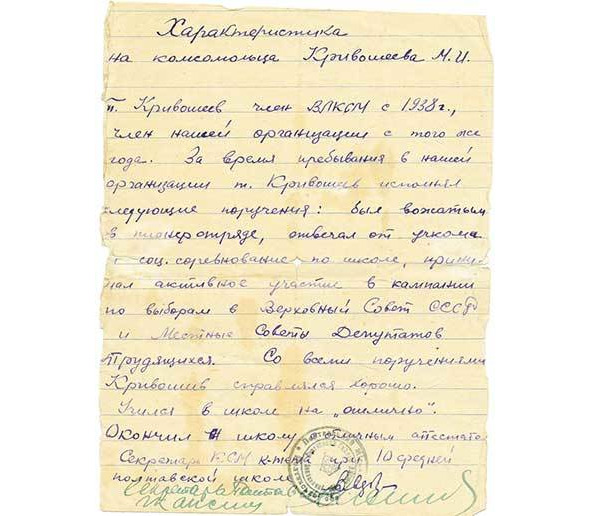 Характеристика
на комсомольца Кривошеева М.И.
т. Кривошеев член ВЛКСМ с 1938г.,
член нашей организации с того же
года. За время пребывания в нашей
организации т. Кривошеев исполнял
следующие поручения: был вожатым
в пионеротряде, отвечал от учкома
соц. соревнование по школе, прини-
мал активное участие в кампании
по выборам в Верховный Совет СССР
и Местные Советы Депутатов
Трудящихся. Со всеми поручениями
Кривошеев справлялся хорошо.
Учился в школе на „отлично".
Окончил школу отличным аттестатом
Секретарь КСМ к-тета при 10 средней
полтавской школе
Секретарь